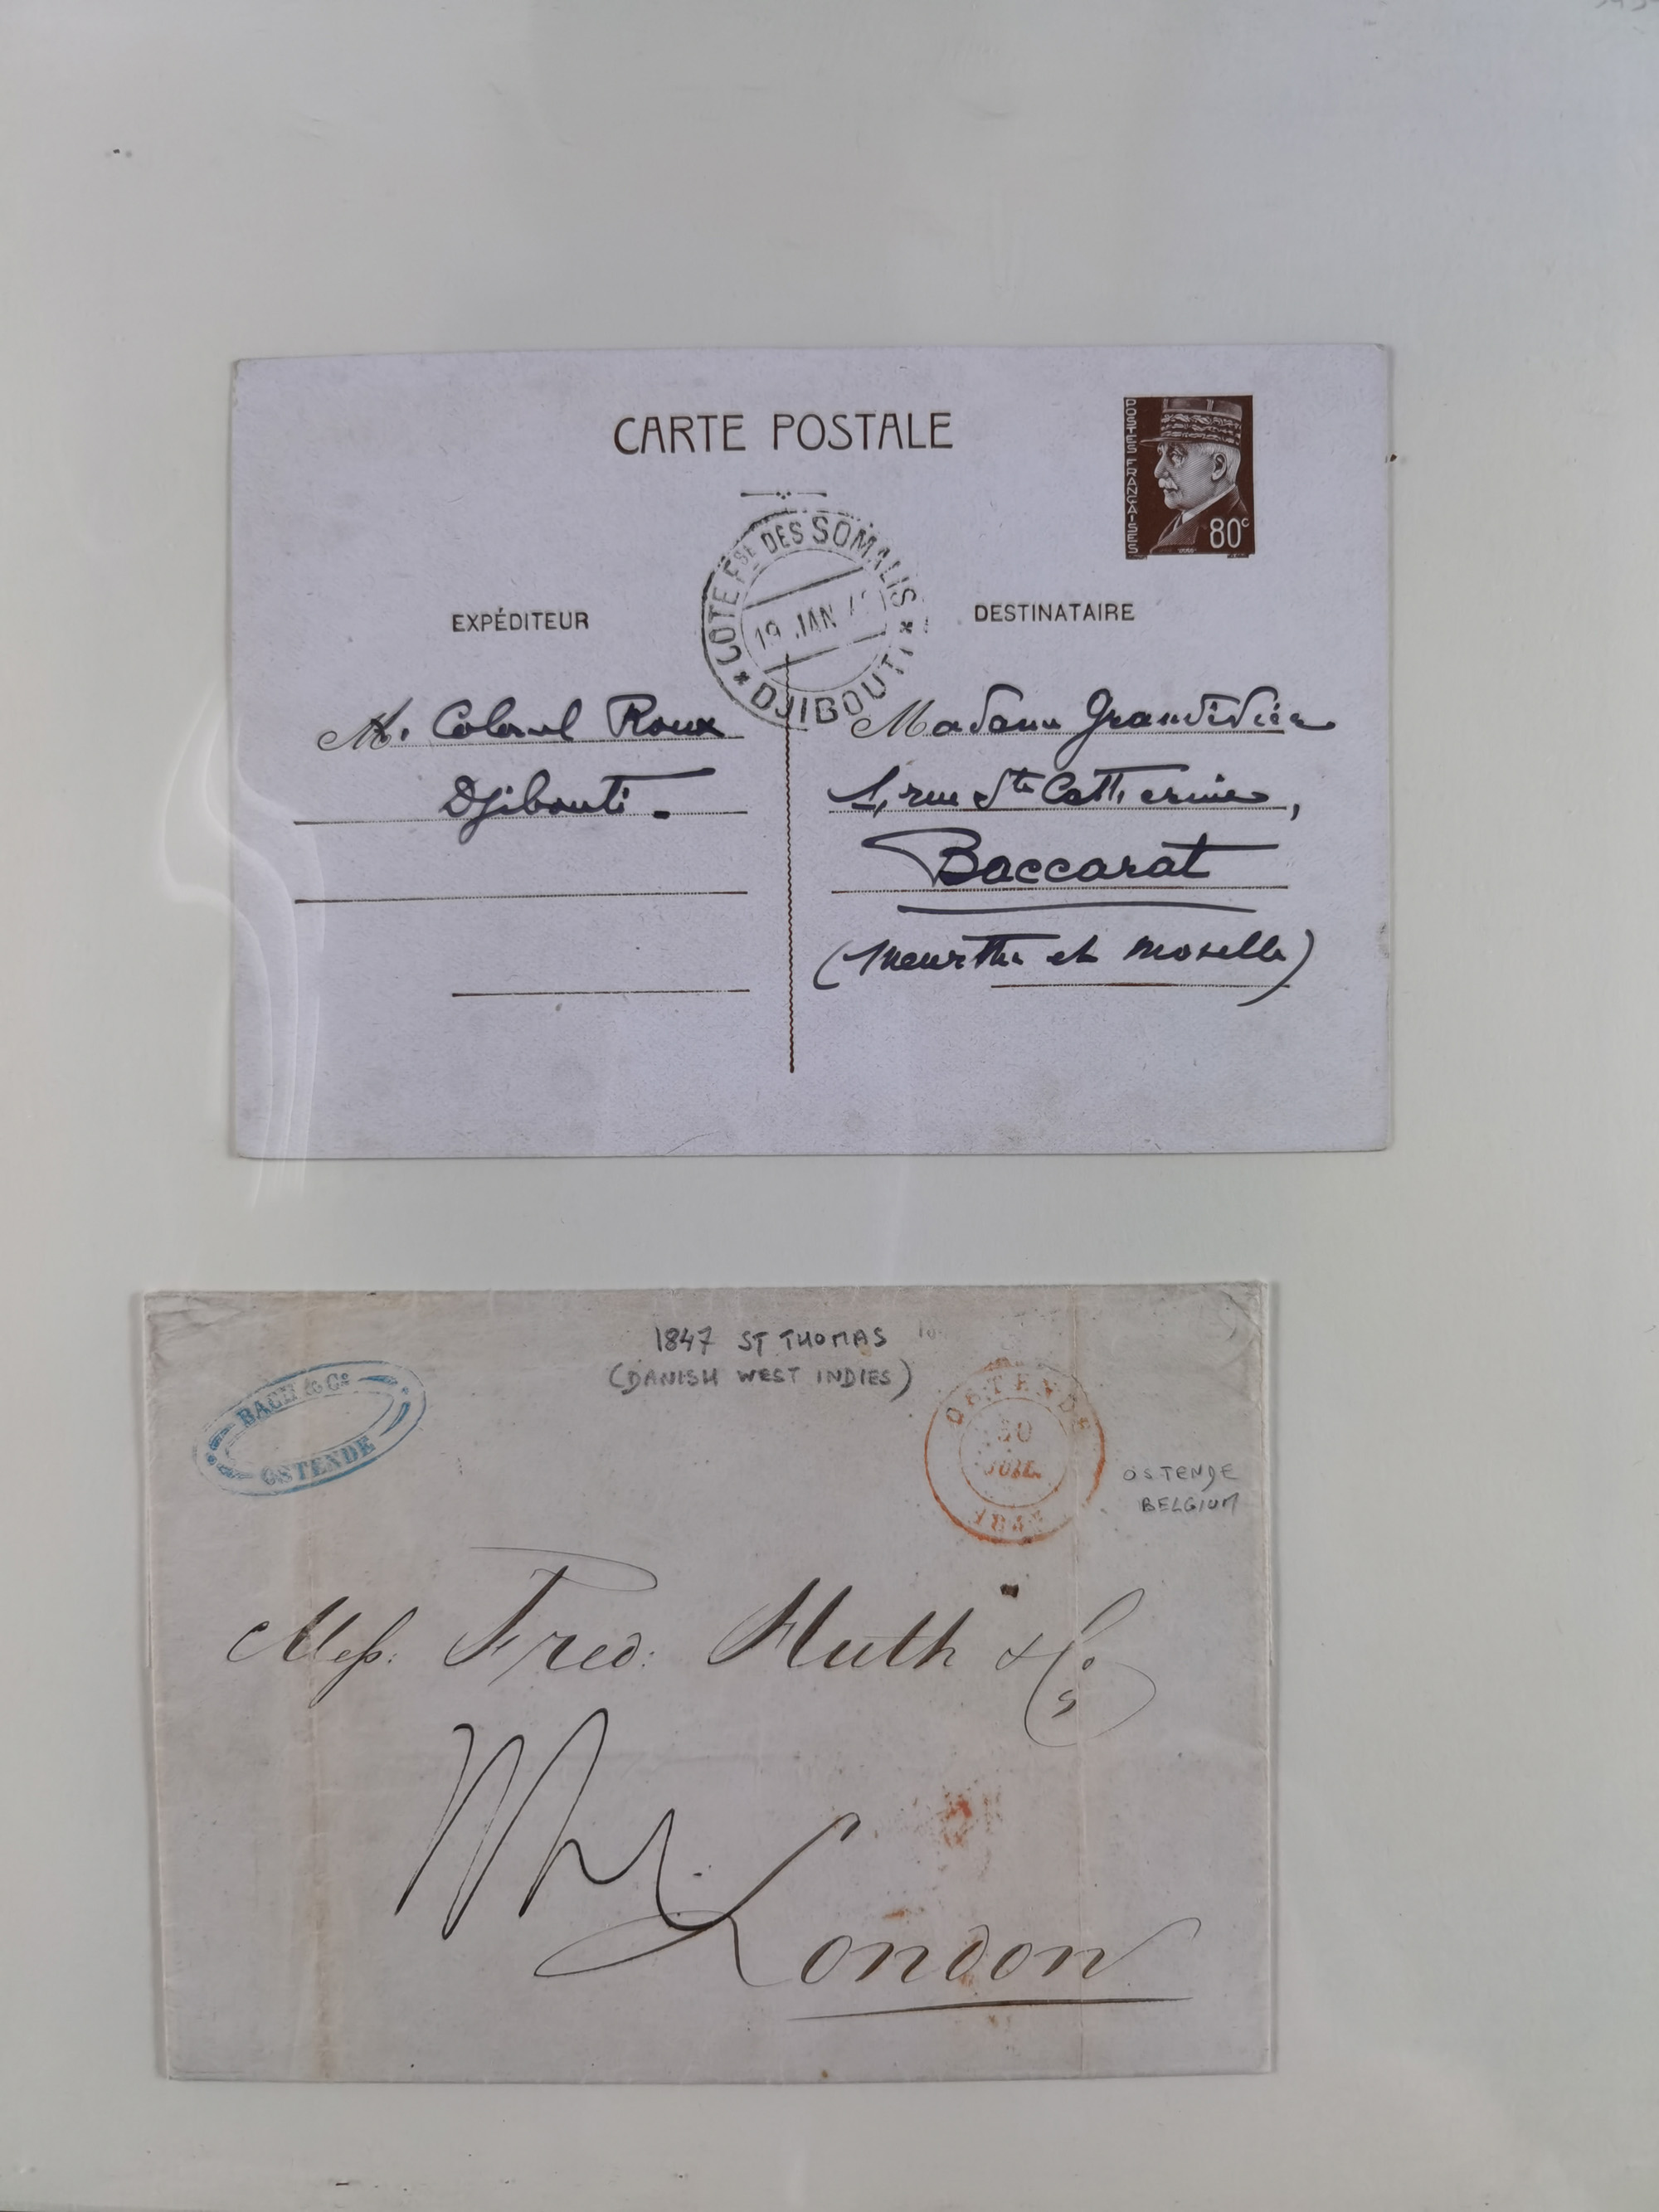 CARTE POSTALE
POSTES FRANÇAISES
80c
COTE FSE DES SOMALIS
19 JAN
* DJIBOUTI *
EXPÉDITEUR
DESTINATAIRE
M. Colonel Roux
Djibouti.
Madame Grandidier
1, rue Ste Catherine,
Baccarat
(Meurthe et Moselle)
1847 ST THOMAS
(DANISH WEST INDIES)
BACH & Co
OSTENDE
OSTENDE
JUIL.
OSTENDE
BELGIUM
Mess: Fred: Huth & Co
London